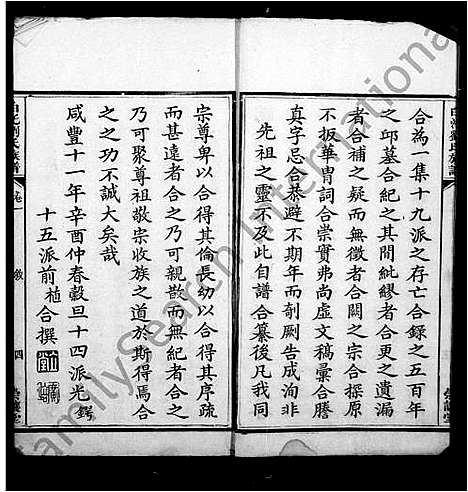 合為一集十九派之存亡合錄之五百年
之邱墓合紀之其間紕繆者合更之遺漏
者合補之疑而無徵者合闕之宗合探原
不扳華胄詞合崇實弗尚虛文稿彙合謄
真字忌合恭避不期年而剞劂告成洵非
先祖之靈不及此自譜合纂後凡我同
宗尊卑以合得其倫長幼以合得其序疏
而甚遠者合之乃可親散而無紀者合之
乃可聚尊祖敬宗收族之道於斯得焉合
之之功不誠大矣哉
咸豐十一年辛酉仲春穀旦十四派光鍔
十五派前植合撰
劉氏族譜
卷一
敘
四
FamilySearch International